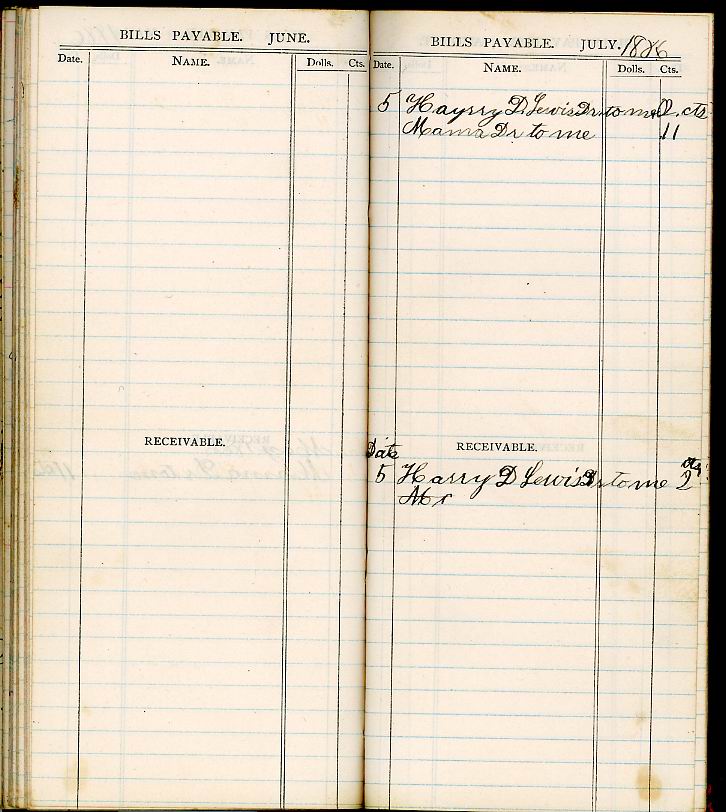 BILLS PAYABLE. JUNE.
Date. NAME. Dolls. Cts.
RECEIVABLE.
BILLS PAYABLE. JULY. 1886
Date. NAME. Dolls. Cts.
5 Hayrry D Lewis Dr. to me 2 cts
Mama Dr to me 11
RECEIVABLE.
Date cts
5 Harry D Lewis Dr to me 2
Mr